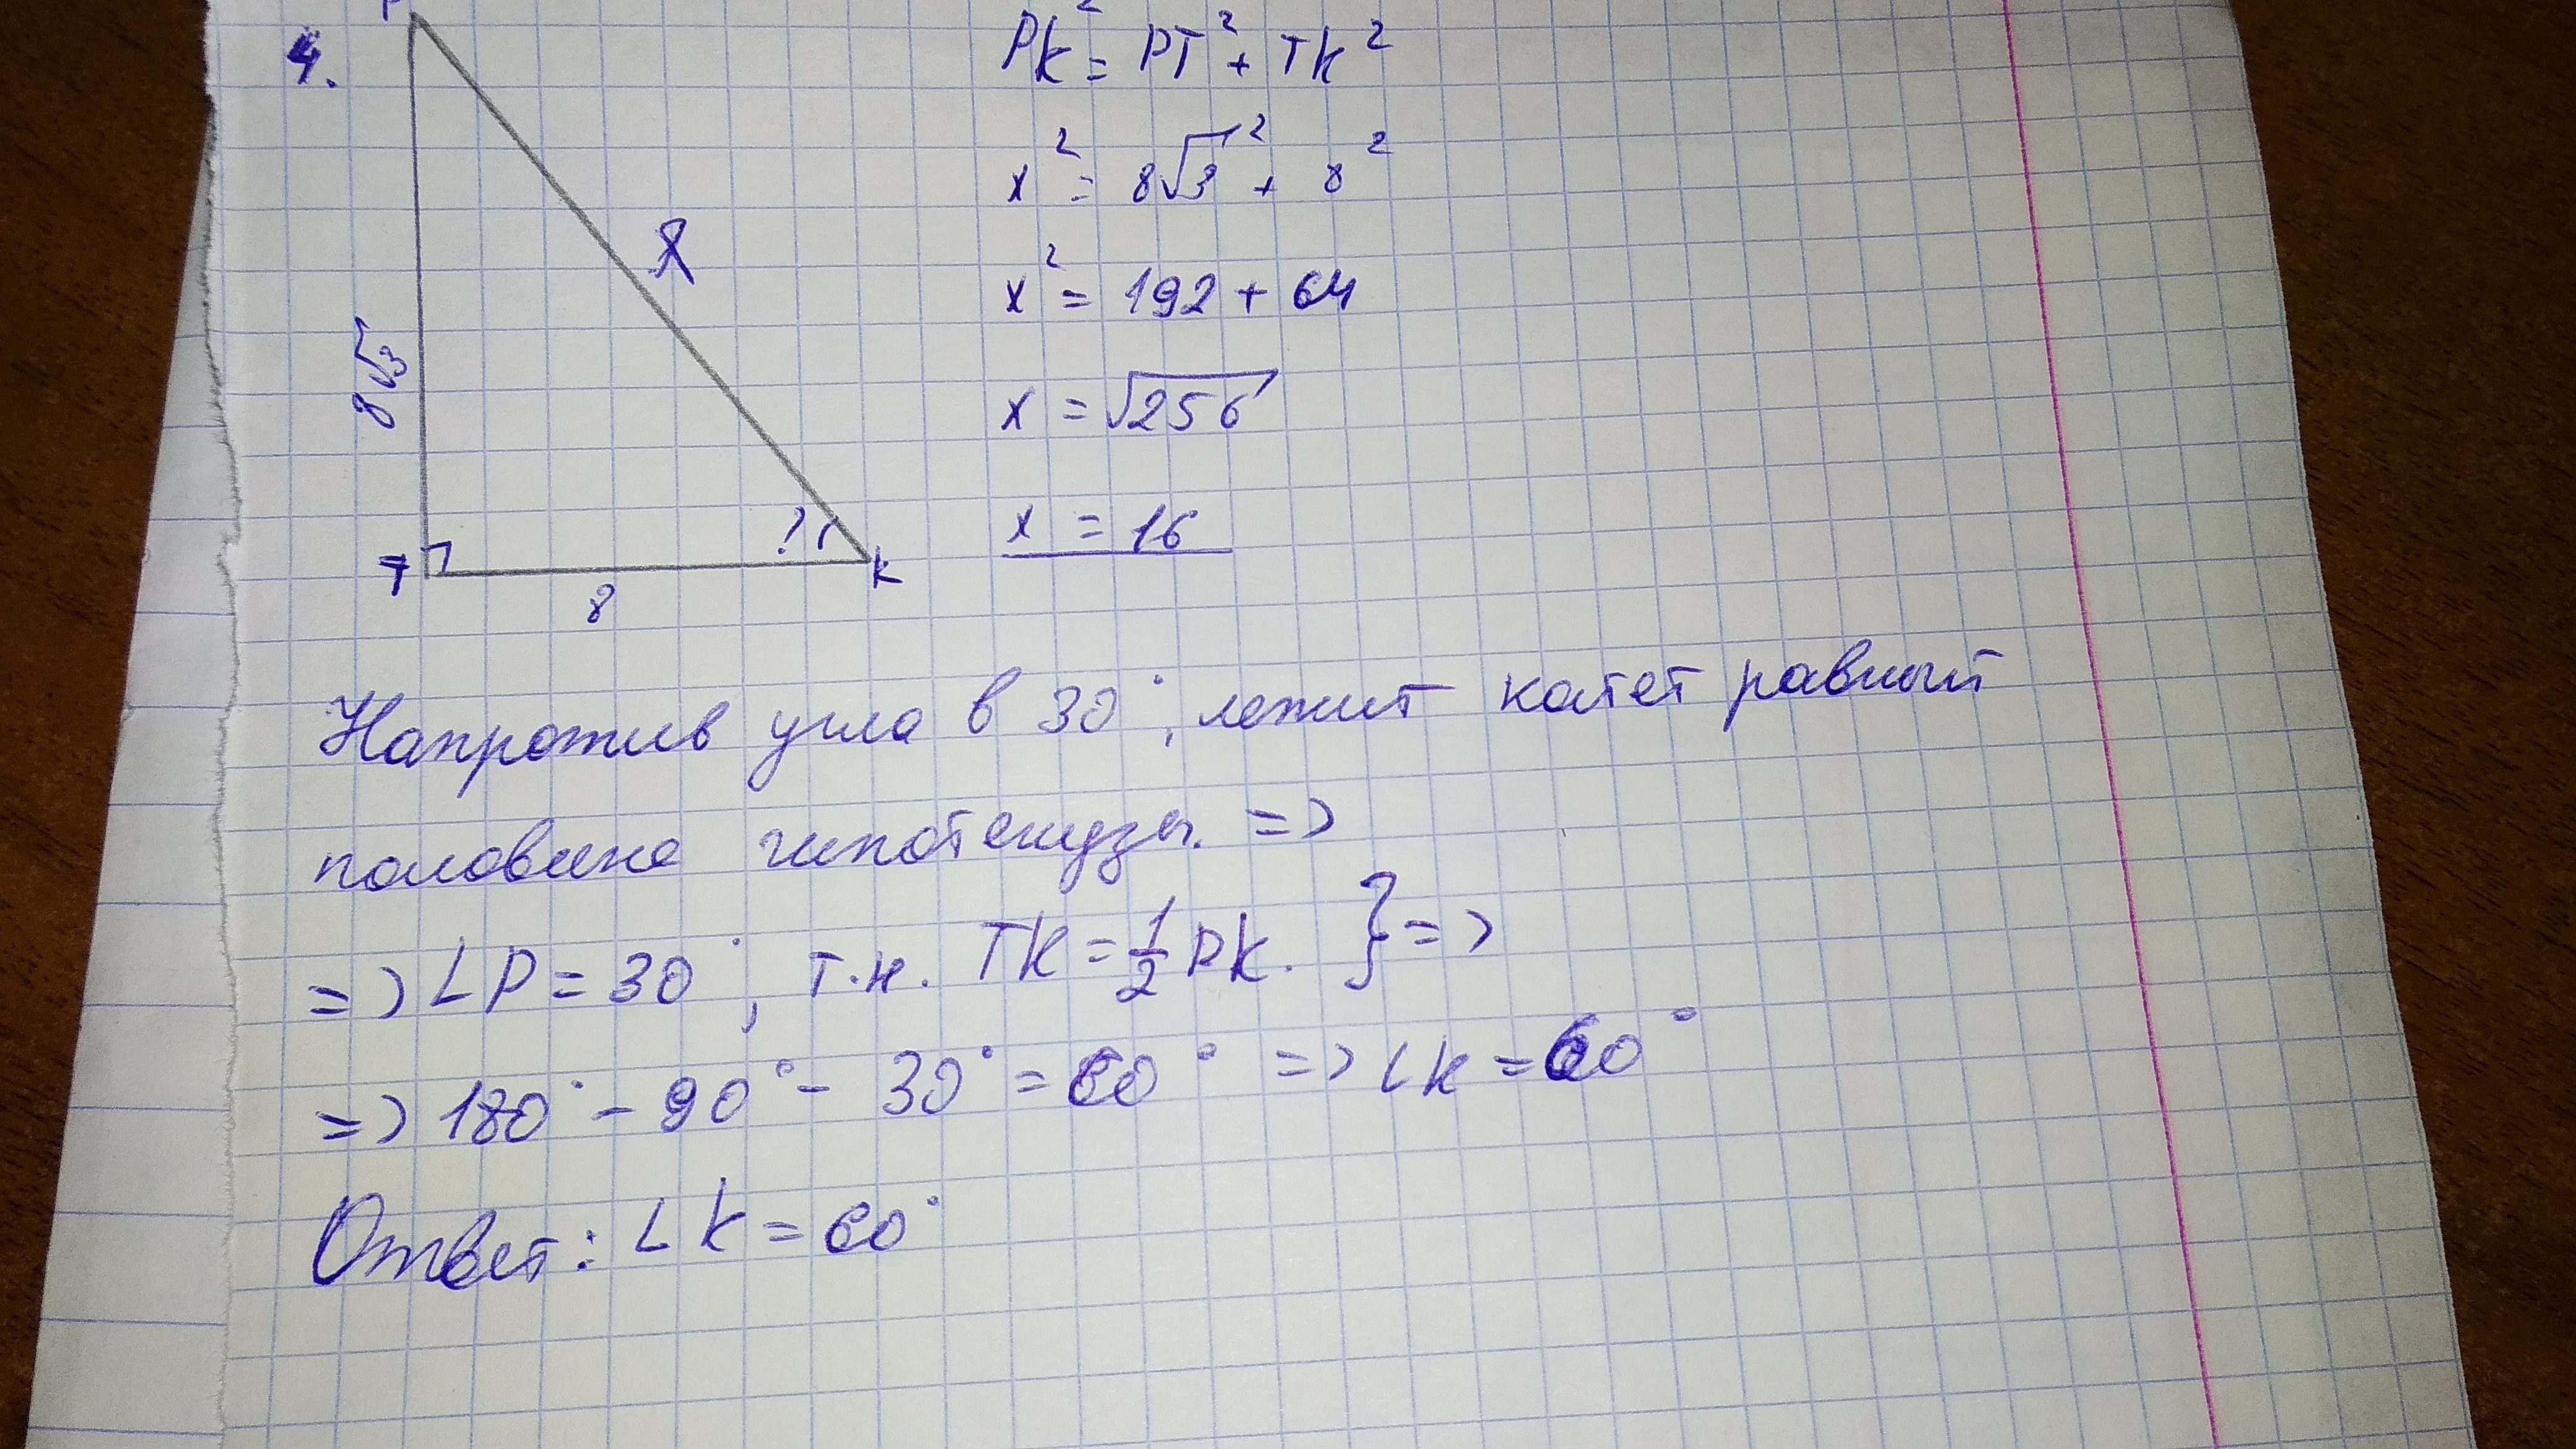 4.
P
8√3
X
T
8
?
K
PK² = PT² + TK²
x² = 8√3² + 8²
x² = 192 + 64
x = √256
x = 16
Напротив угла в 30°, лежит катет равный
половине гипотенузы. =>
=> ∠P = 30°, т.к. TK = 1/2 PK. } =>
=> 180° - 90° - 30° = 60° => ∠K = 60°
Ответ: ∠K = 60°